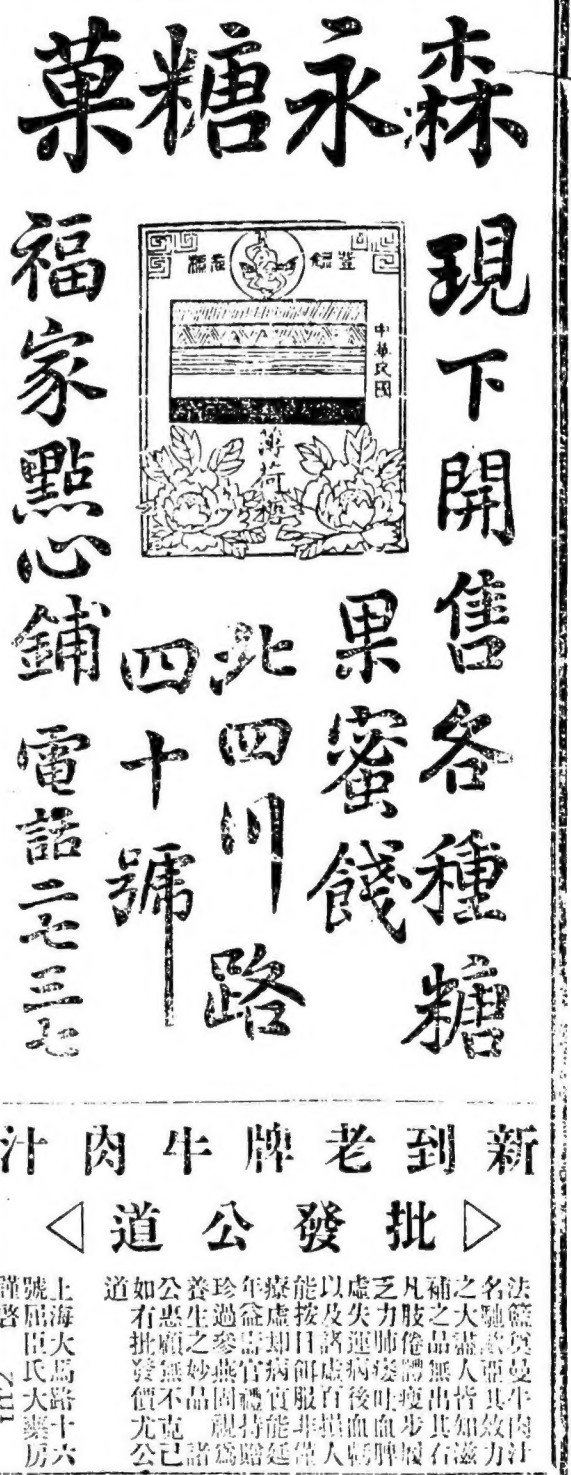 森永糖菓
現下開售各種糖
果蜜餞
北四川路
四十號
福家點心鋪 電話二七三七
登錄商標
中華民國
薄荷糖
新到老牌牛肉汁
批發公道
名馳歐亞其效力
之大盡人皆知滋
補之品無出其右
凡肢倦體瘦步履
乏力肺痿吐血脾
虛失運病後血虧
以及諸虛百損人
能按日餌服非僅
療虛却病實能延
年益壽官禮持贈
珍過參燕固視為
養生之妙品諸
公惠顧無不克己
如有批發價尤公
道
上海大馬路十六
號屈臣氏大藥房
謹啓